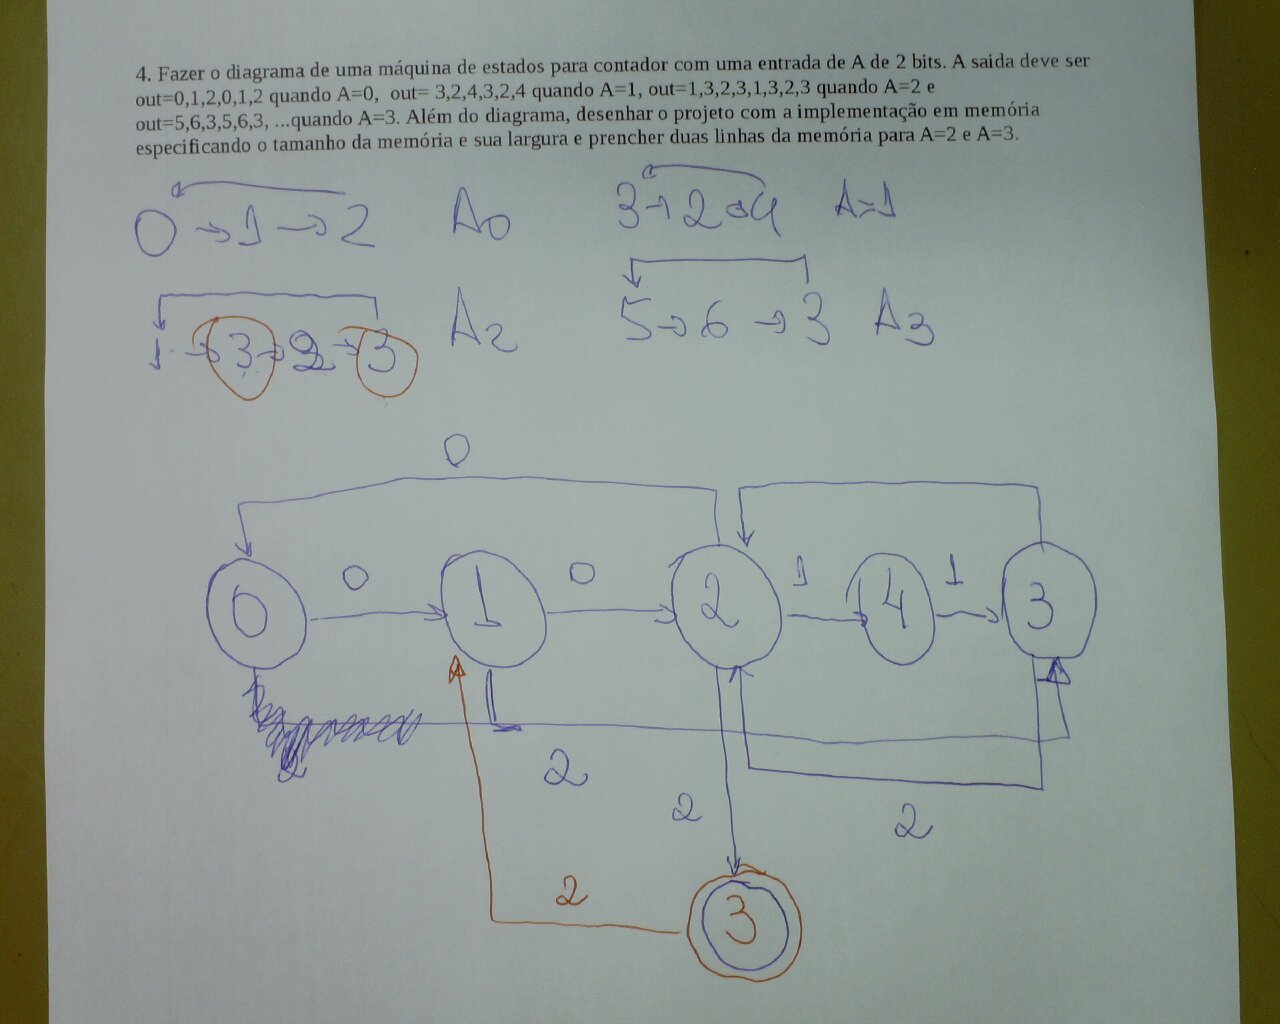 4. Fazer o diagrama de uma máquina de estados para contador com uma entrada de A de 2 bits. A saida deve ser
out=0,1,2,0,1,2 quando A=0, out= 3,2,4,3,2,4 quando A=1, out=1,3,2,3,1,3,2,3 quando A=2 e
out=5,6,3,5,6,3, ...quando A=3. Além do diagrama, desenhar o projeto com a implementação em memória
especificando o tamanho da memória e sua largura e prencher duas linhas da memória para A=2 e A=3.
0 → 1 → 2 A0 3 → 2 → 4 A=1
1 → 3 → 2 → 3 A2 5 → 6 → 3 A3
0
0 0 1 1
0 1 2 4 3
2 2
2 2
2
3